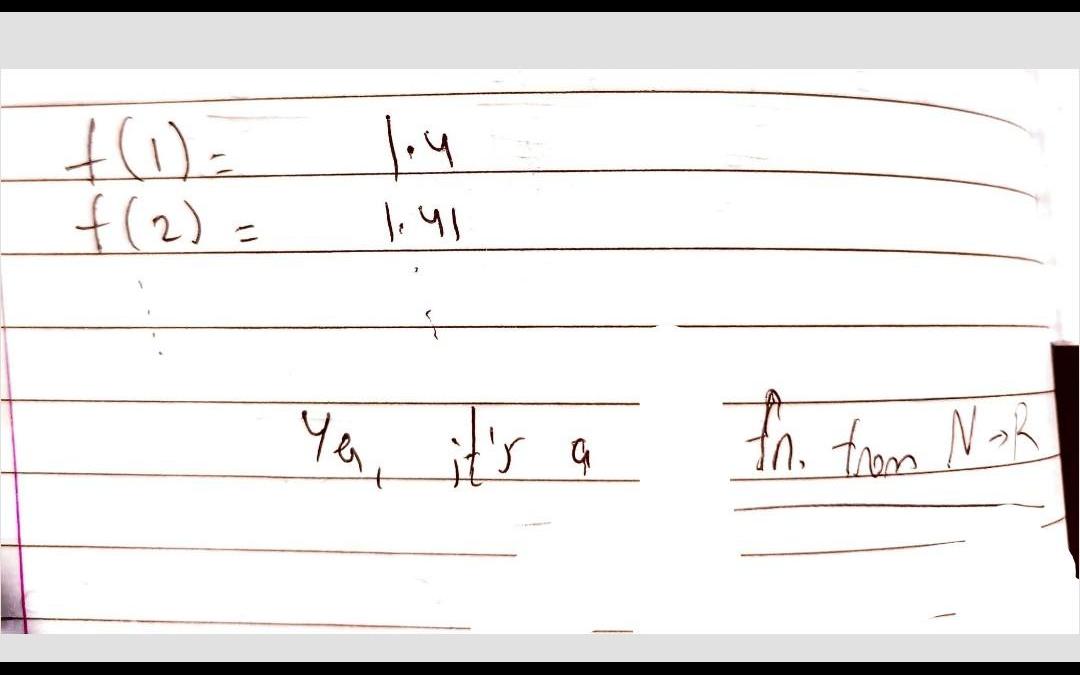 f(1) = 1.4
f(2) = 1.41
Yes, it's a fn. from N→R